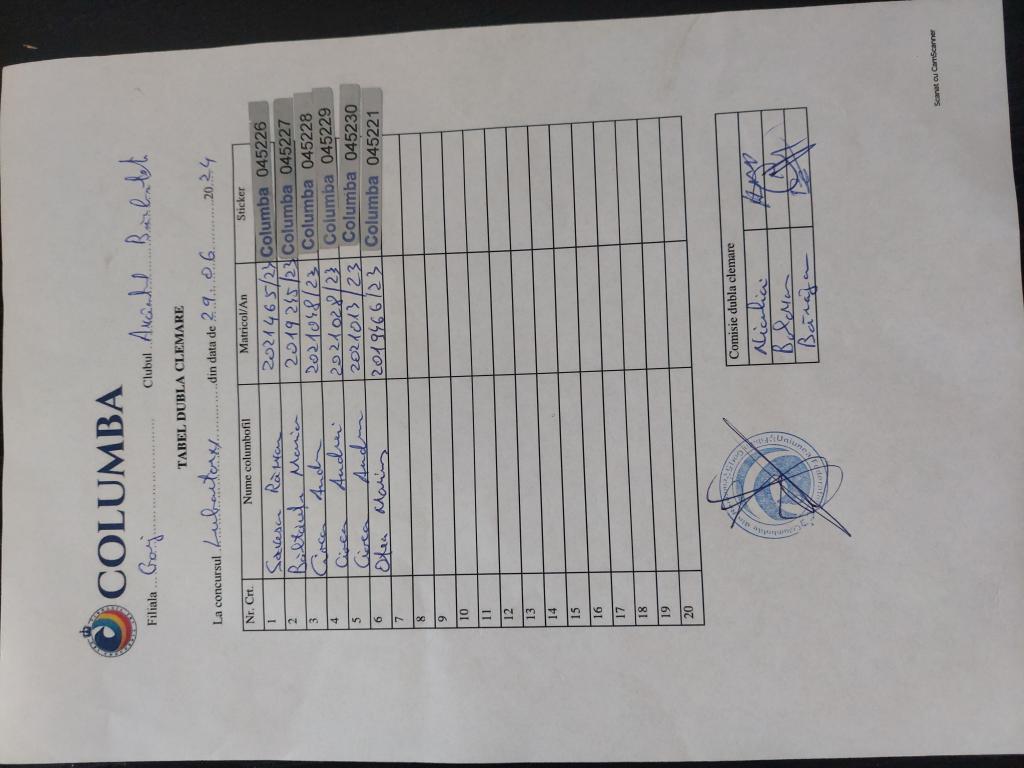 COLUMBA
Filiala ... Gorj ........................ Clubul ... Axintel Bărbătești
TABEL DUBLA CLEMARE
La concursul ............ din data de 29.06 ........ 2024
Nr. Crt. Nume columbofil Matricol/An Sticker
1 Răzvan 2021465/23 Columba 045226
2 Maria 2019245/23 Columba 045227
3 Cioca Andr 2021048/23 Columba 045228
4 Cioca Andrei 2021028/23 Columba 045229
5 Cioca Andr 2021013/23 Columba 045230
6 Marius 2019466/23 Columba 045221
7
8
9
10
11
12
13
14
15
16
17
18
19
20
Comisie dubla clemare
Nicolici
Băraga
Scanat cu CamScanner